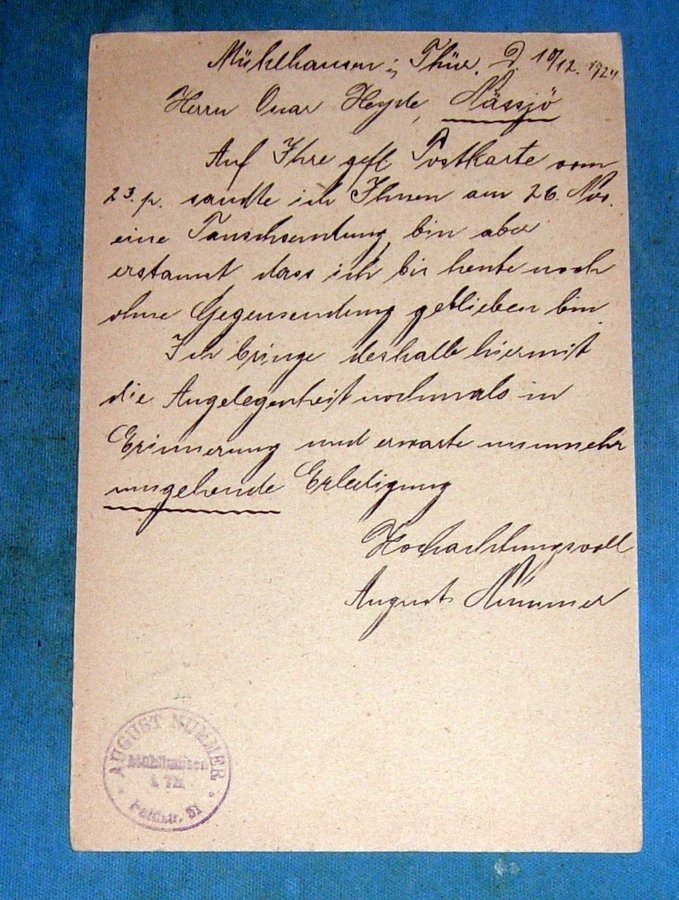 Mühlhausen i/ Thür. D. 10/12. 1924
Herrn Onar Heyde, Nässjö
Auf Ihre gefl. Postkarte vom
23. p. sandte ich Ihnen am 26. Nov.
eine Tauschsendung, bin aber
erstaunt dass ich bis heute noch
ohne Gegensendung geblieben bin
Ich bringe deshalb hiermit
die Angelegenheit nochmals in
Erinnerung und erwarte nunmehr
umgehende Erledigung
Hochachtungsvoll
August Nummer
AUGUST NUMMER
Mühlhausen
i. Th.
Feldstr. 51